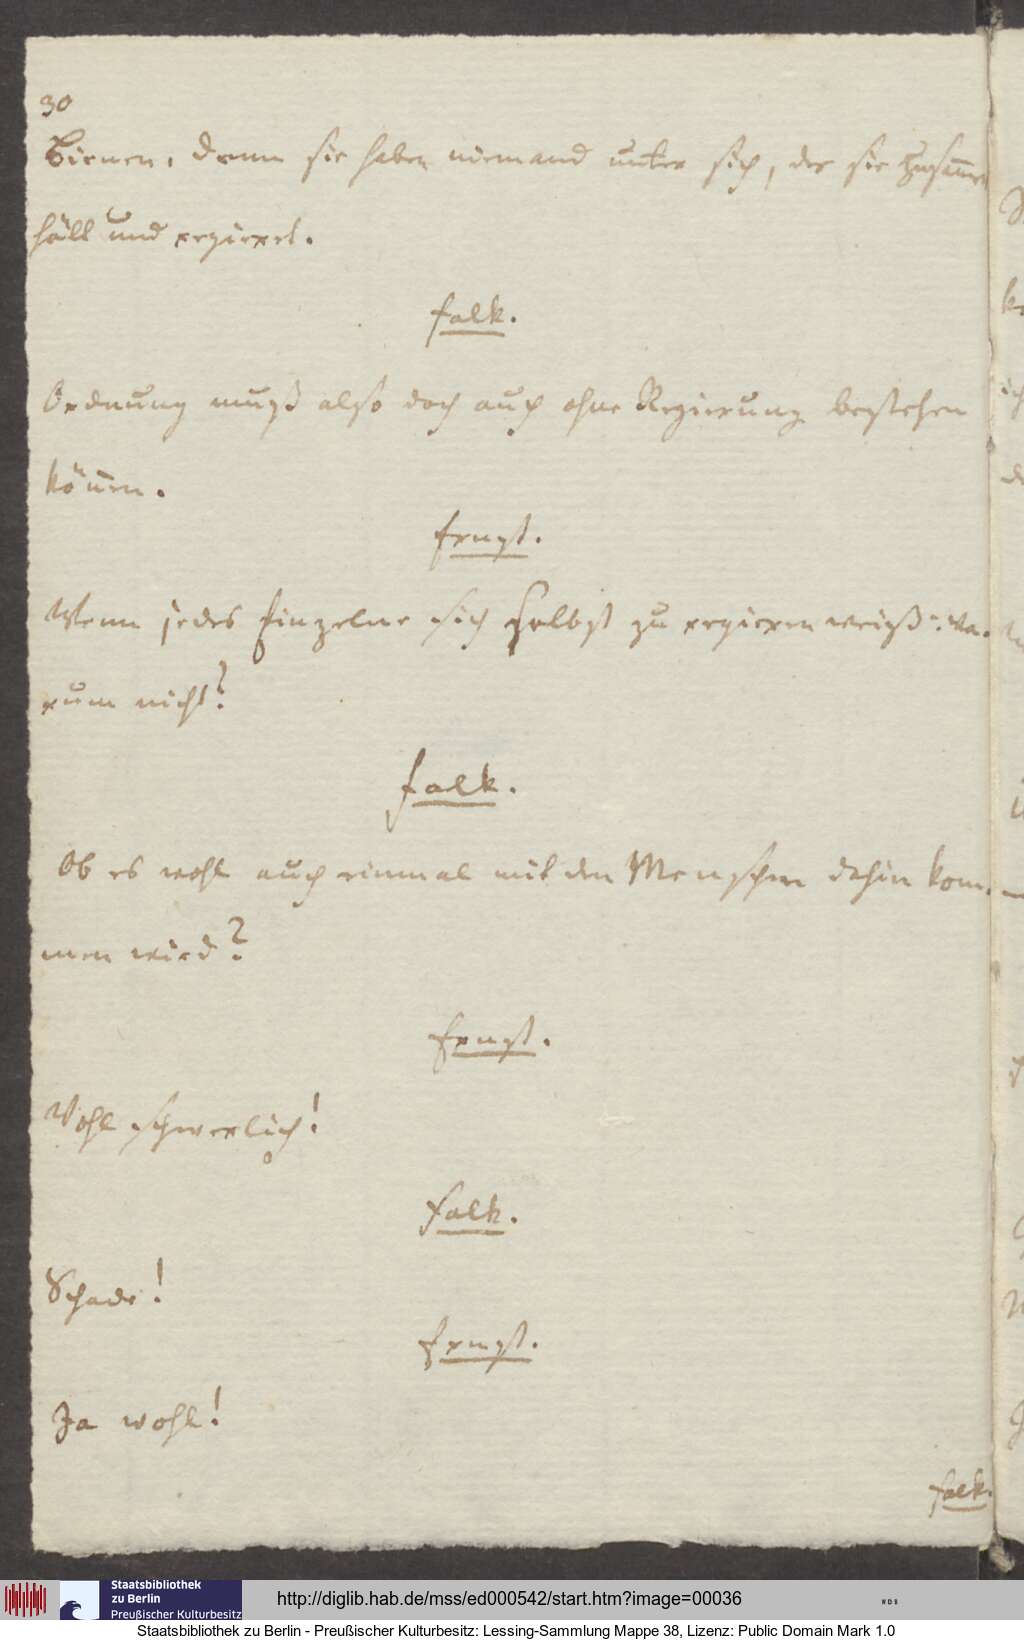 30
Bienen. Denn sie haben niemand unter sich, der sie zusam̅en
hält und regieret.
Falk.
Ordnung muß also doch auch ohne Regierung bestehen
kön̅en.
Ernst.
Wenn jedes Einzelne sich selbst zu regieren weiß: wa-
rum nicht?
Falk.
Ob es wohl auch einmal mit den Menschen dahin kom-
men wird?
Ernst.
Wohl schwerlich!
Falk.
Schade!
Ernst.
Ja wohl!
Falk.
Staatsbibliothek
zu Berlin
Preußischer Kulturbesitz
http://diglib.hab.de/mss/ed000542/start.htm?image=00036
Staatsbibliothek zu Berlin - Preußischer Kulturbesitz: Lessing-Sammlung Mappe 38, Lizenz: Public Domain Mark 1.0